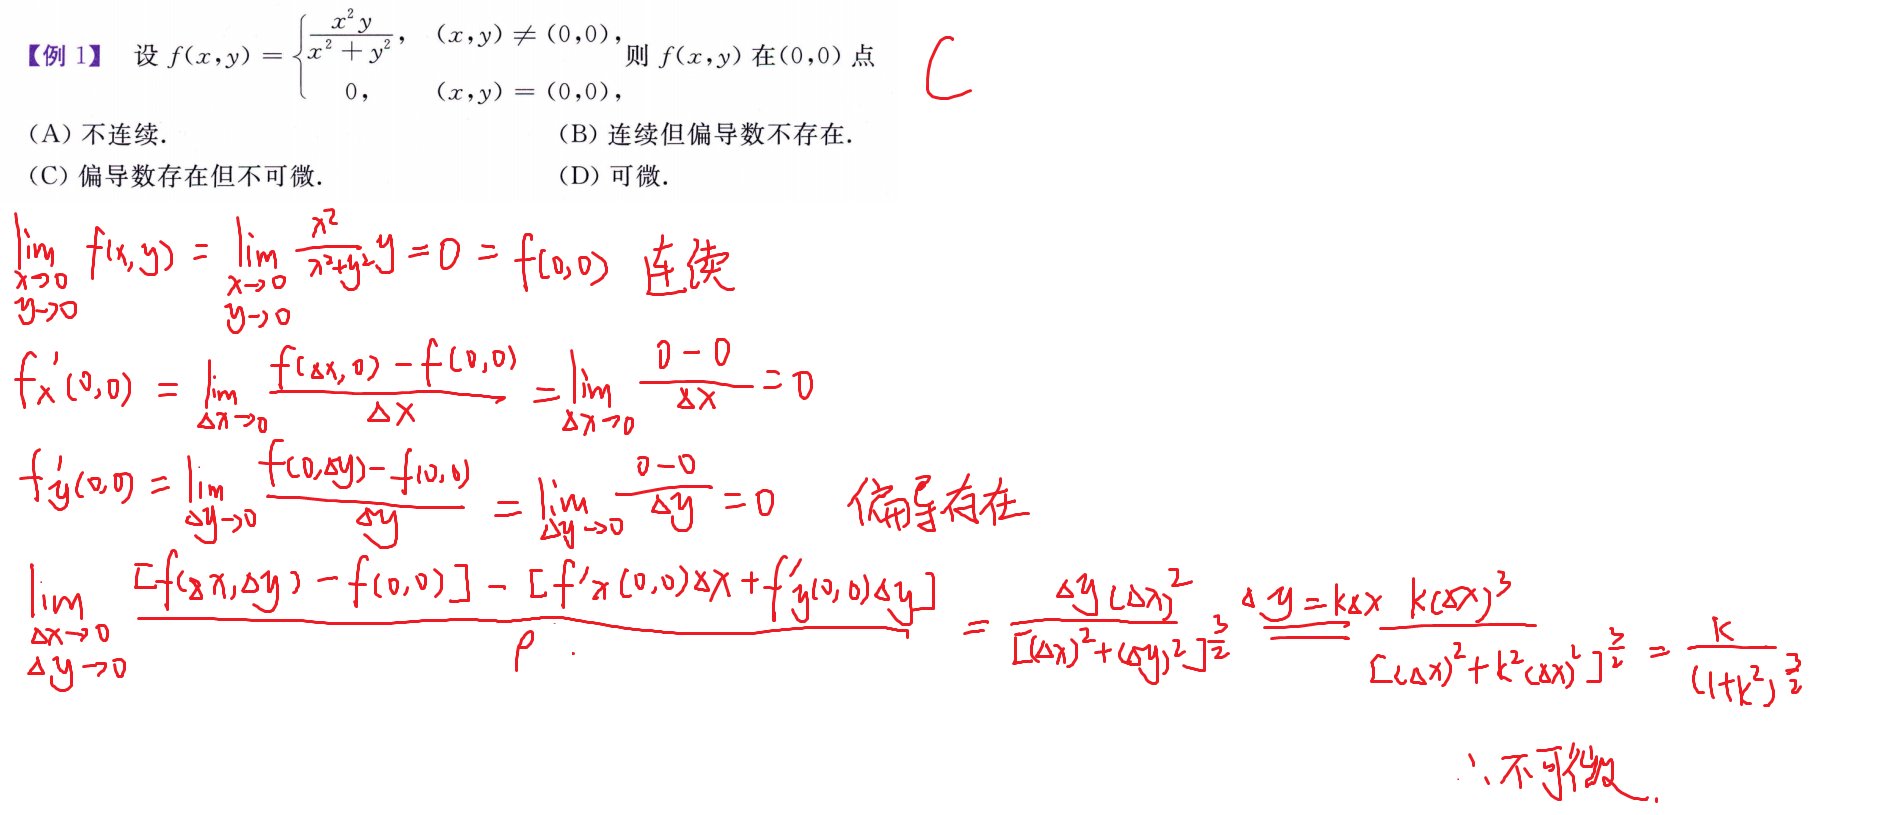 【例 1】 设 f(x,y) = { x²y / (x² + y²), (x,y) ≠ (0,0), 则 f(x,y) 在(0,0) 点 C
0, (x,y) = (0,0),
(A) 不连续. (B) 连续但偏导数不存在.
(C) 偏导数存在但不可微. (D) 可微.
lim_{x→0, y→0} f(x,y) = lim_{x→0, y→0} x²/(x²+y²) y = 0 = f(0,0) 连续
fx'(0,0) = lim_{Δx→0} [f(Δx,0) - f(0,0)]/Δx = lim_{Δx→0} (0-0)/Δx = 0
f'y(0,0) = lim_{Δy→0} [f(0,Δy) - f(0,0)]/Δy = lim_{Δy→0} (0-0)/Δy = 0 偏导存在
lim_{Δx→0, Δy→0} {[f(Δx,Δy) - f(0,0)] - [f'x(0,0)Δx + f'y(0,0)Δy]}/ρ = Δy(Δx)²/[(Δx)²+(Δy)²]^{3/2} Δy=kΔx k(Δx)³/[(Δx)²+k²(Δx)²]^{3/2} = k/(1+k²)^{3/2}
∴不可微.